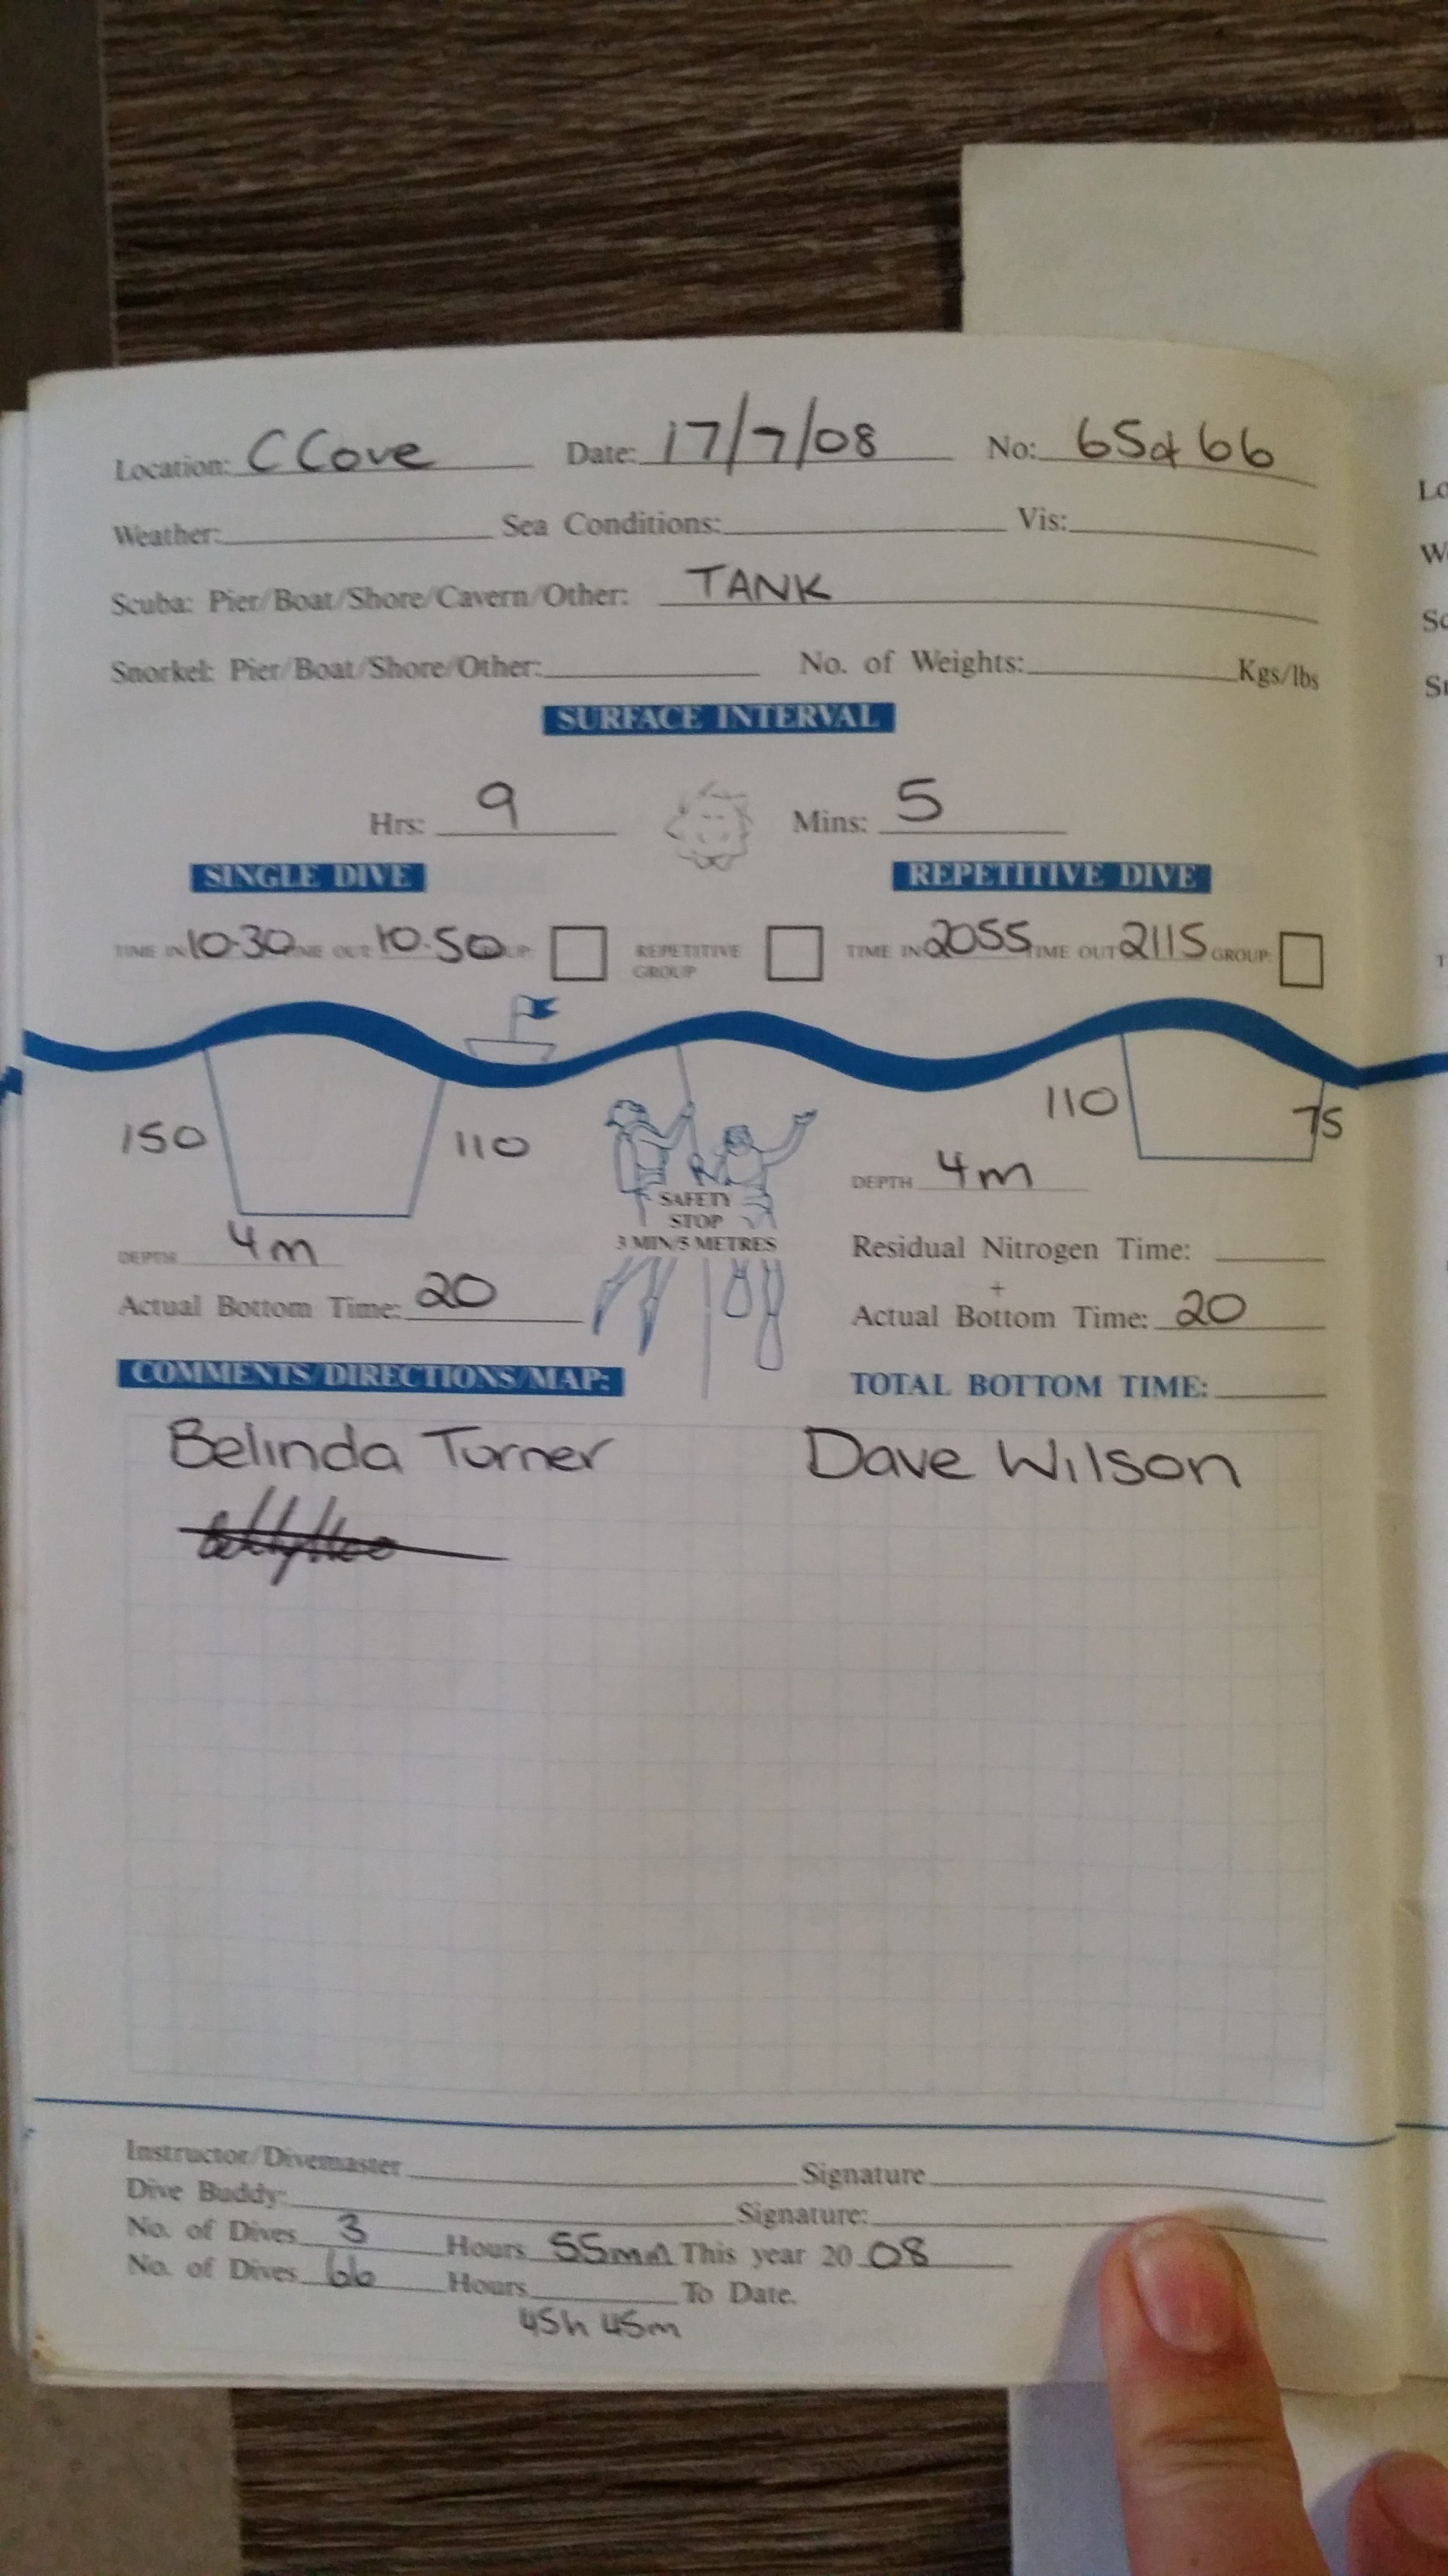 Location: C Cove Date: 17/7/08 No: 65 & 66
Weather: Sea Conditions: Vis:
Scuba: Pier/Boat/Shore/Cavern/Other: TANK
Snorkel: Pier/Boat/Shore/Other: No. of Weights: Kgs/lbs
SURFACE INTERVAL
Hrs: 9 Mins: 5
SINGLE DIVE REPETITIVE DIVE
TIME IN 10.30 TIME OUT 10.50 GROUP: REPETITIVE GROUP TIME IN 2055 TIME OUT 2115 GROUP:
150 110 110 75
SAFETY
STOP
3 MIN/5 METRES
DEPTH 4m DEPTH 4m
Residual Nitrogen Time:
+
Actual Bottom Time: 20 Actual Bottom Time: 20
COMMENTS/DIRECTIONS/MAP: TOTAL BOTTOM TIME:
Belinda Turner Dave Wilson
Instructor/Divemaster Signature
Dive Buddy: Signature:
No. of Dives 3 Hours 55min This year 20 08
No. of Dives 66 Hours To Date.
45h 45m